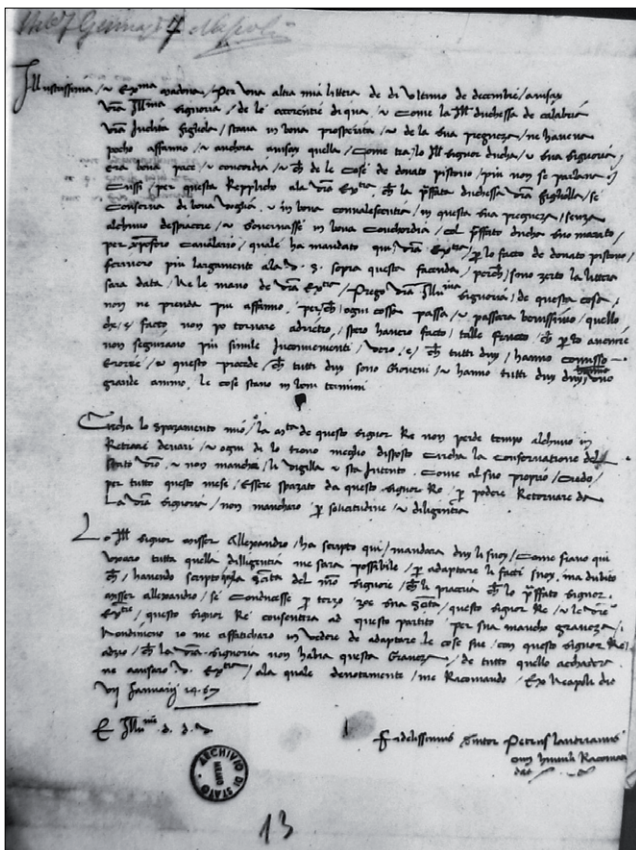 1467 Gennajo 7 Napoli
Illustrissima / et Ex.ma madona / Per una altra mia littera de di ultimo de decembre / avisay
v̄ra Ill.ma signoria / de le occorentie di qua / et come la Ill. duchessa de calabria
v̄ra inclita figliola / stava in bona prosperita / et de la sua pregneza / ne haveva
pocho affanno / et anchora avisay quella / come tra lo Ill. signor ducha / et sua signoria /
era bona pace / et concordia / et ch̄ de le cose de donato pistorio / piu non se parlava
Cussi / per questa Replicho ala v̄ra Ex.tia ch̄ la p̄ffata duchessa v̄ra figliolla / se
conserva di bona voglia / et in bona convalescentia / in questa sua pregneza / senza
alchuno despiacere / et Governasse in bona Conchordia / col p̄ffato ducha suo marito /
per xp̄oforo Cavalario / quale ha mandato qui v̄ra Ex.tia / p̄ lo facto de donato pistorio /
scrivero piu largamente ala v. s. sopra questa facenda / perch̄ / sono zerto la littera
sara data / ne le mane de v̄ra Ex.tia / Prego v̄ra Illu.ma signoria / de questa cosa /
non ne prenda piu affanno / perch̄ / ogni cossa passa / et passara benissimo / quello
che / e / facto non po tornare adrietro / spero havera facto / talle fructo / ch̄ p̄ lo avenire
non seguirano piu simile Inconvenienti / vero / e / ch̄ tutti duy / hanno comisso
errore / et questo procede / ch̄ tutti duy sono Gioveni / et hanno tutti duy uno
grande animo. le cose stano in boni termini
Circha lo spazamento mio / la m.ta de questo signor Re non perde tempo alchuno in
Retrare denari / et ogni di lo trovo meglio disposto circha la conservatione del
stato v̄ro / et non mancha / li vigilla / et sta intento / come al suo proprio / Credo /
per tutto questo mese / essere spazato da questo signor Re / p̄ podere Retornare da
La v̄ra signoria / non mancharo p̄ solicitudine / et diligentia
Lo Ill. signor misser Allexandro / ha scripto qui / mandara duy li suoy / come siano qui
usaro tutta quella dilligentia me sara possibile / p̄ adaptare li facti suoy / ma dubito
misser allexandro / se conducesse p̄ terzo / questo signor Re / et le v̄re
Ex.tie / questo signor Re consentira ad questo partito / per sua mancho graveza /
Nondimeno io me affaticharo in vedere de adaptare le cose sue / con questo signor Re
adio / ch̄ la v̄ra signoria non habia questa Graveza / de tutto quello achadera
ne avisaro v. Ex.tia / ala quale devotamente / me Racomando / Ex Neapoli die
VII Januarij 1467
E. Illu.me d. d. v.
Fidelissimus s̄vitor Petrus
cum humili Racomā
datione
ARCHIVIO DI STATO MILANO
13